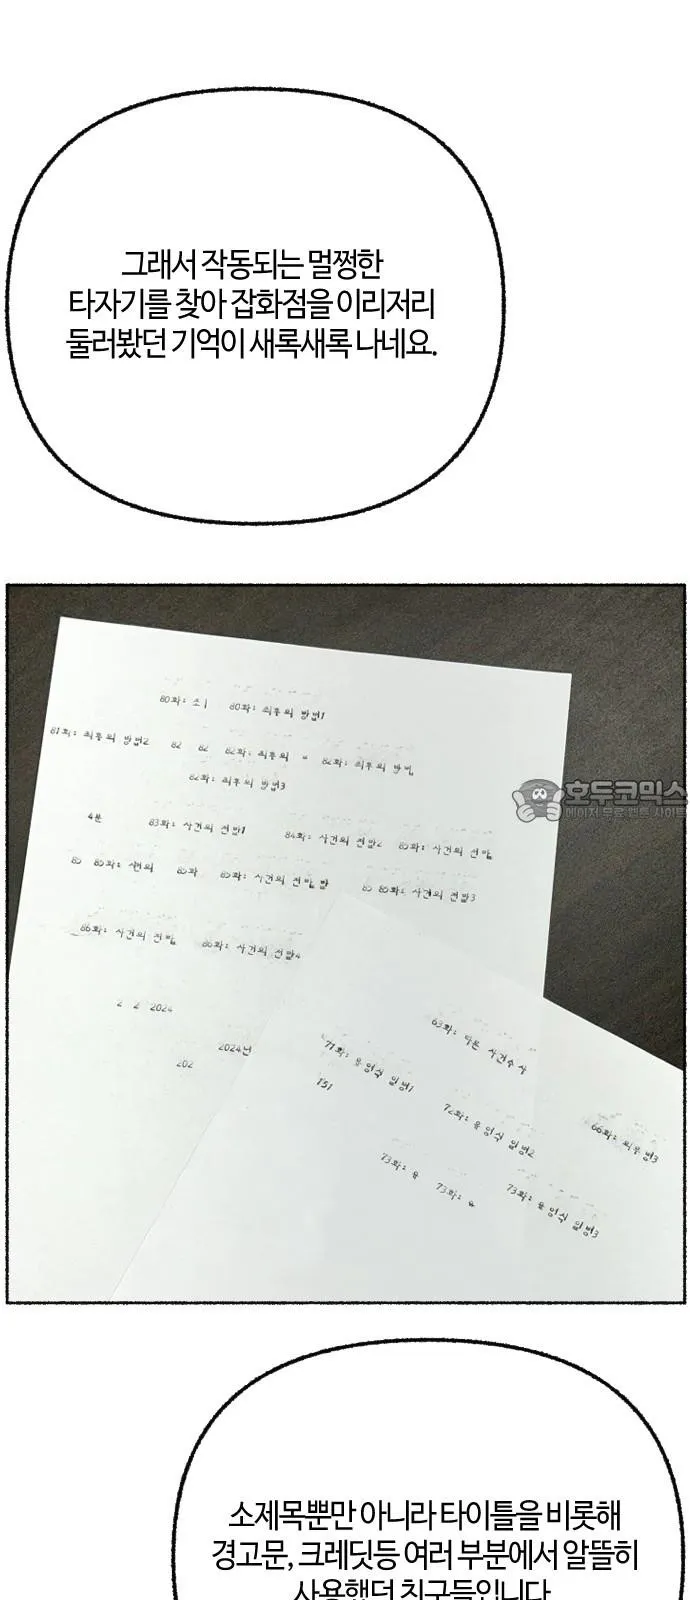 그래서 작동되는 멀쩡한
타자기를 찾아 잡화점을 이리저리
둘러봤던 기억이 새록새록 나네요.
80화: 소 80화: 최후의 방법1
81화: 최후의 방법2 82 82 82화: 최후의 82화: 최후의 방법
82화: 최후의 방법3
호두코믹스
4분 83화: 사건의 전말1 84화: 사건의 전말2 85화: 사건의 전말
85 85화: 사건의 85화 85화: 사건의 전말 말 85 85화: 사건의 전말3
86화: 사건의 전말 86화: 사건의 전말4
2 2 2024
2024년
202
63화: 다른 사건수사
71화: 윤영식 일병1
151
72화: 윤영식 일병2
66화:
73화: 윤 73화: 73화: 윤영식 일병3
소제목뿐만 아니라 타이틀을 비롯해
경고문, 크레딧등 여러 부분에서 알뜰히
사용했던 친구들입니다